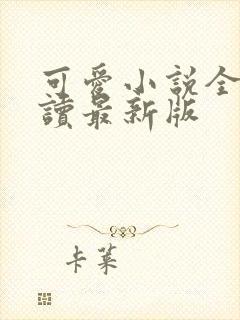 可愛小說全
讀最新版
卡萊